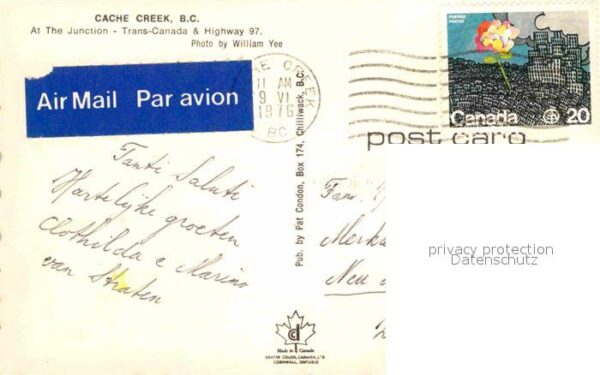 CACHE CREEK, B.C.
At The Junction - Trans-Canada & Highway 97.
Photo by William Yee
Air Mail Par avion
CREEK
11 AM
9 VI
1976
BC
POSTAGE
POSTES
Canada 20
post card
Tanti Saluti
Hartelijke groeten
Clothilda e Marino
van Straten
Pub. by Pat Condon, Box 174, Chilliwack, B.C.
Fam.
Merka
Neu
privacy protection
Datenschutz
Made in Canada